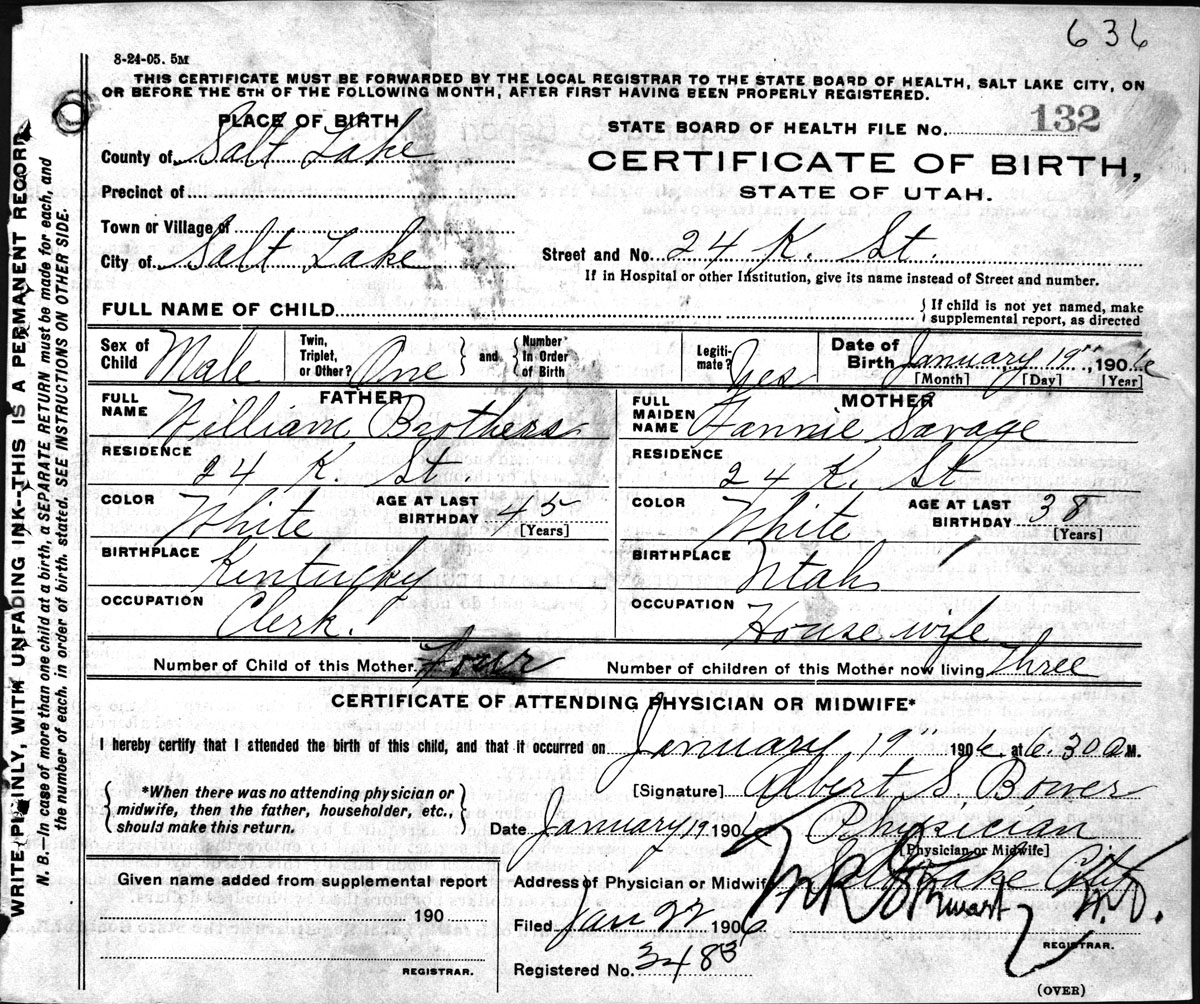 636
8-24-05. 5M
THIS CERTIFICATE MUST BE FORWARDED BY THE LOCAL REGISTRAR TO THE STATE BOARD OF HEALTH, SALT LAKE CITY, ON
OR BEFORE THE 5TH OF THE FOLLOWING MONTH, AFTER FIRST HAVING BEEN PROPERLY REGISTERED.
PLACE OF BIRTH
STATE BOARD OF HEALTH FILE No. 132
County of Salt Lake
CERTIFICATE OF BIRTH,
STATE OF UTAH.
Precinct of
Town or Village of
City of Salt Lake
Street and No. 24 K. St.
If in Hospital or other Institution, give its name instead of Street and number.
FULL NAME OF CHILD
{If child is not yet named, make
supplemental report, as directed
Sex of Child Male
Twin, Triplet, or Other? One } and { Number In Order of Birth
Legiti-mate? Yes
Date of Birth January 19", 1906
[Month] [Day] [Year]
FATHER
FULL NAME William Brothers
RESIDENCE 24 K. St.
COLOR White AGE AT LAST BIRTHDAY 45 [Years]
BIRTHPLACE Kentucky
OCCUPATION Clerk.
MOTHER
FULL MAIDEN NAME Fannie Savage
RESIDENCE 24 K. St
COLOR White AGE AT LAST BIRTHDAY 38 [Years]
BIRTHPLACE Utah
OCCUPATION House wife
Number of Child of this Mother. Four
Number of children of this Mother now living Three
CERTIFICATE OF ATTENDING PHYSICIAN OR MIDWIFE*
I hereby certify that I attended the birth of this child, and that it occurred on January 19" 1906 at 6.30 a M.
{*When there was no attending physician or
midwife, then the father, householder, etc.,
should make this return.}
[Signature] Albert S. Bower
Date January 19 1906 Physician
[Physician or Midwife]
Address of Physician or Midwife Salt Lake City
Given name added from supplemental report
190
REGISTRAR.
Filed Jan 22 1906
REGISTRAR.
Registered No. 3483
(OVER)
WRITE PLAINLY, WITH UNFADING INK--THIS IS A PERMANENT RECORD
N. B.—In case of more than one child at a birth, a SEPARATE RETURN must be made for each, and
the number of each, in order of birth, stated. SEE INSTRUCTIONS ON OTHER SIDE.